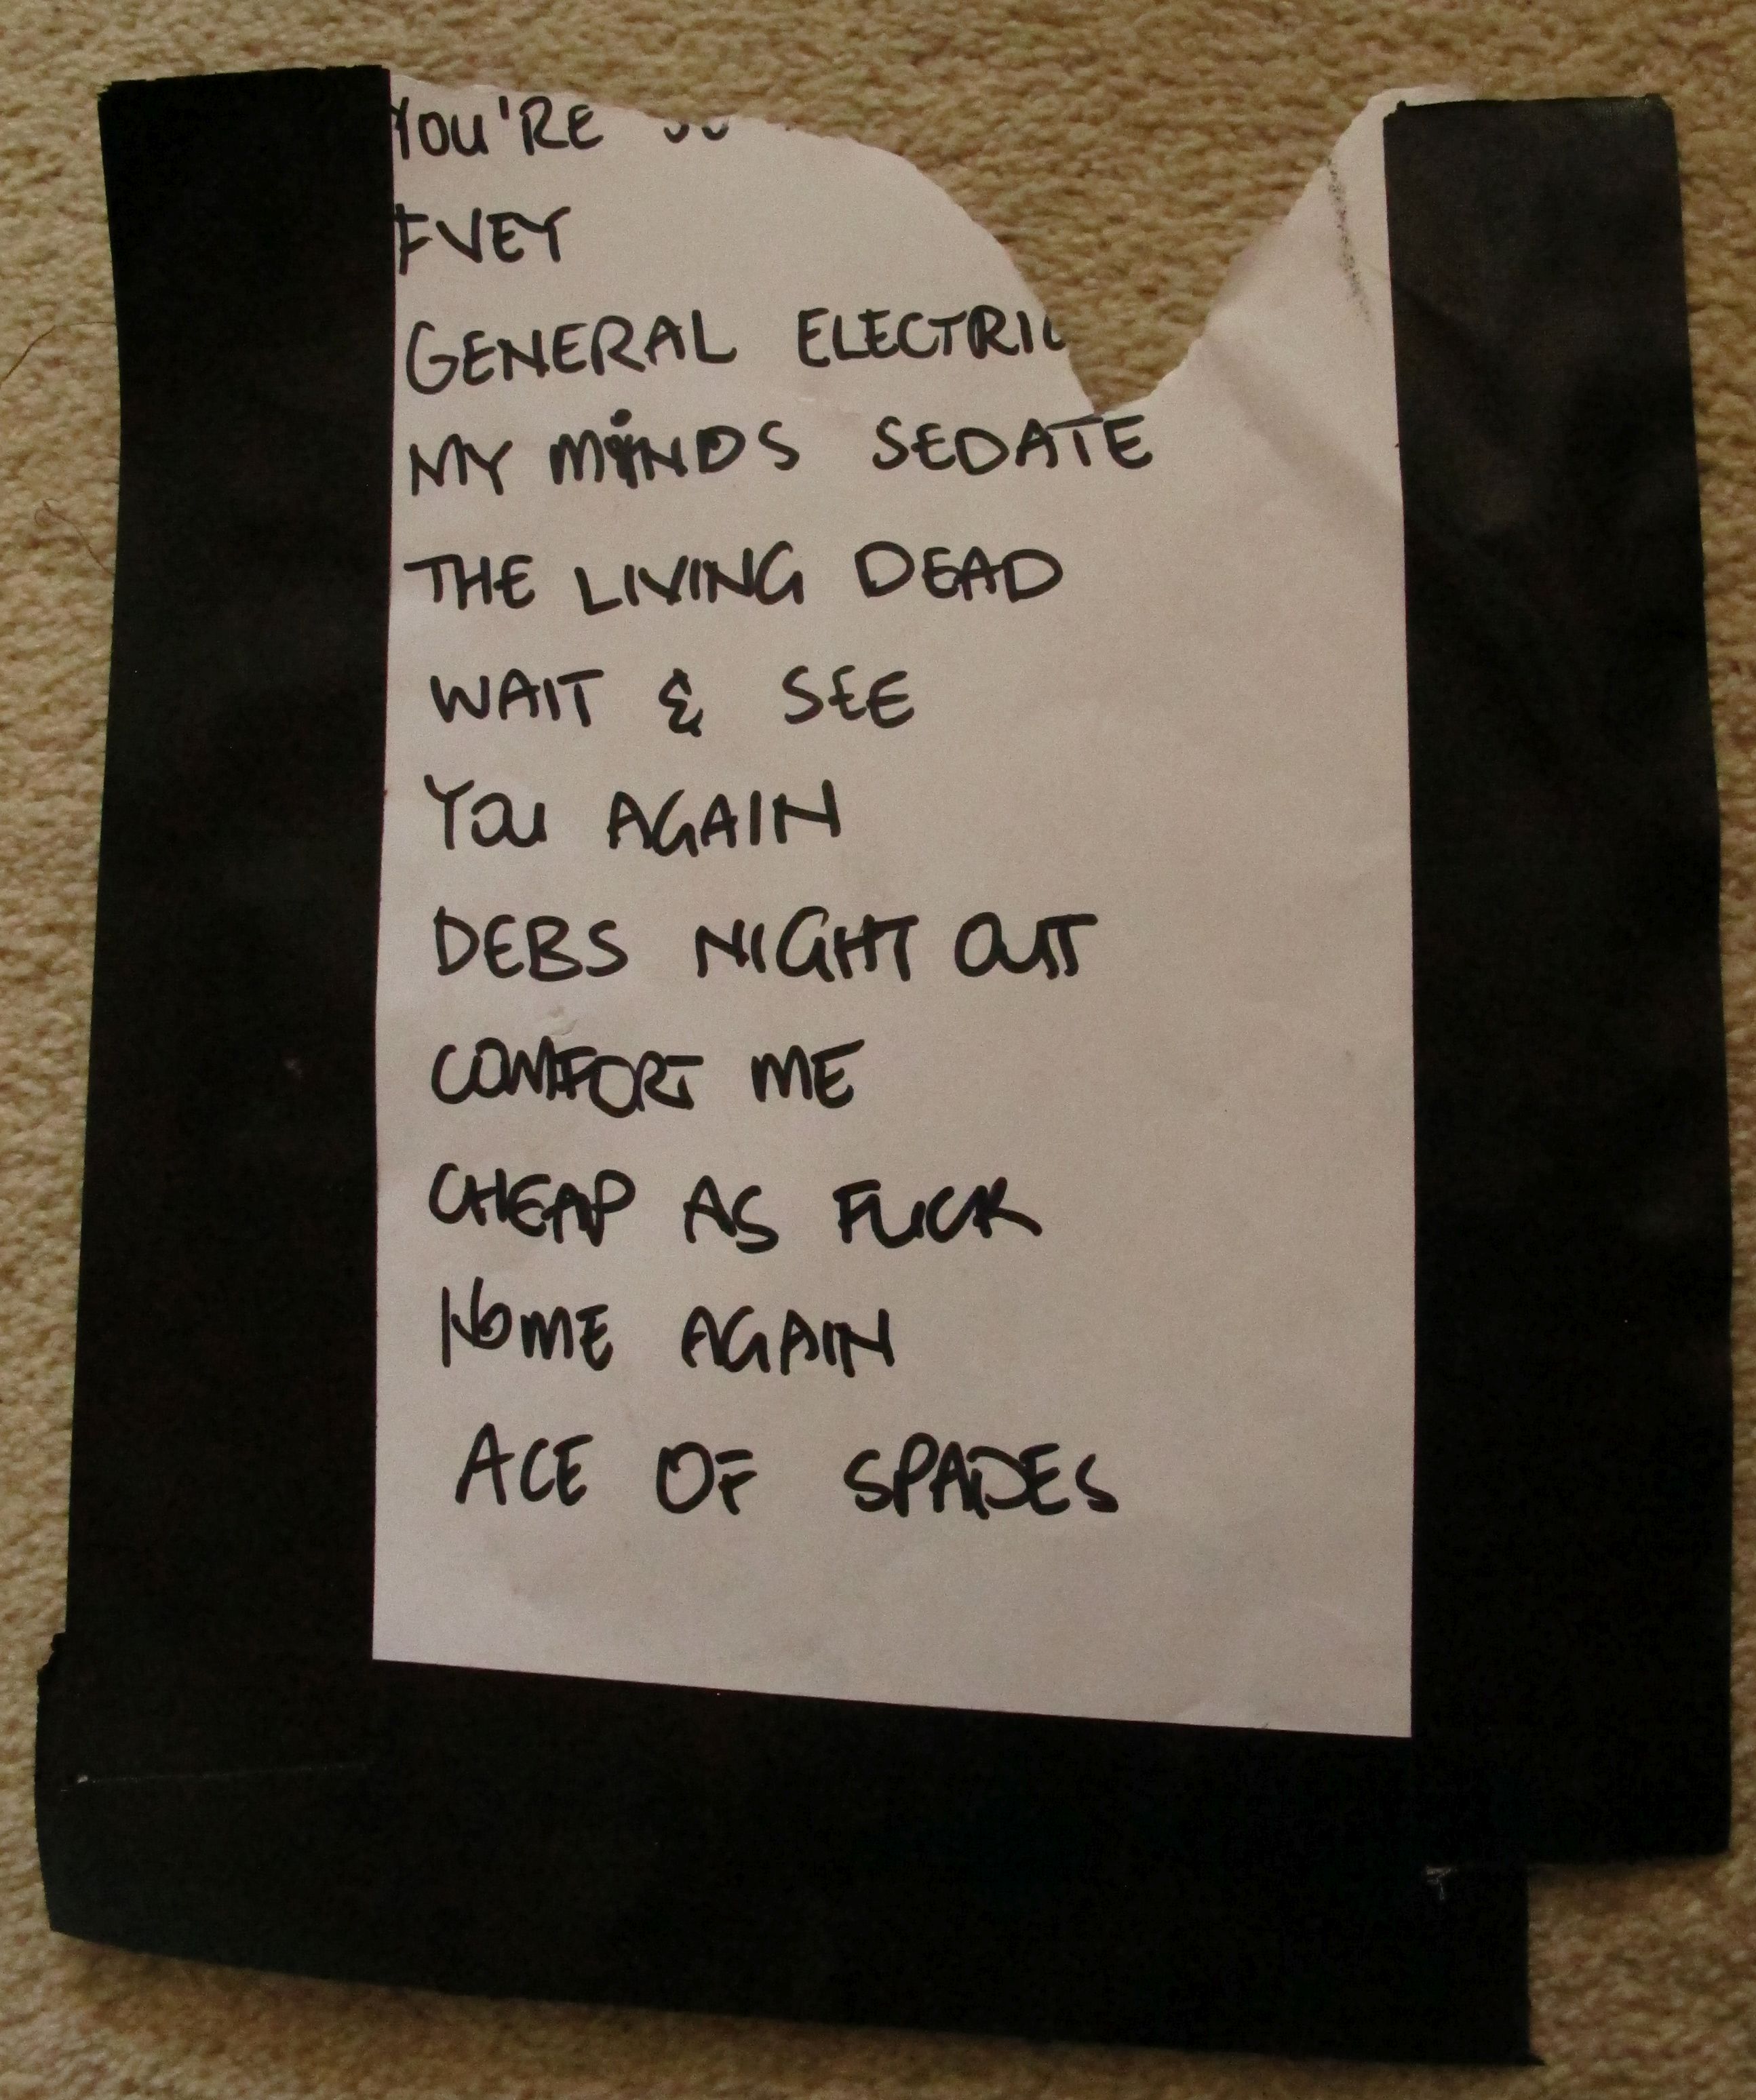 YOU'RE
EVEY
GENERAL ELECTRIC
MY MINDS SEDATE
THE LIVING DEAD
WAIT & SEE
YOU AGAIN
DEBS NIGHT OUT
COMFORT ME
CHEAP AS FUCK
HOME AGAIN
ACE OF SPADES